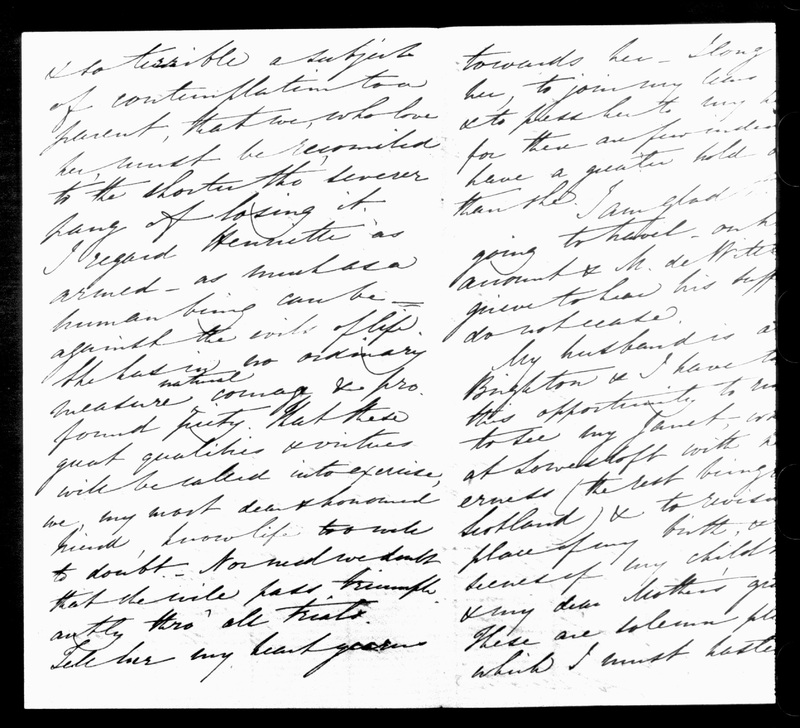 & so terrible a subject
of contemplation to a
parent, that we, who love
her, must be reconciled
to the shorter tho' severer
pang of losing it.
I regard Henriette as
armed – as much as a
human being can be –
against the evils of life.
She has in no ordinary
measure natural courage & pro
found piety. That these
great qualities & virtues
will be called into exercise,
we, my most dear & honoured
friend, know life too well
to doubt – Nor need we doubt
that she will pass triumph
antly thro' all trials.
Tell her my heart yearns
towards her – I long
her, to join my tears
& to press her to my
for there are few indeed
have a greater hold
than she. I am glad
going to travel – on
account & M. de Witt
grieve to hear his suff
do not cease.
My husband is a
Brighton & I have ta
this opportunity to
to see my Janet, who
at Lowestoft with
erness (the rest being
Scotland) & to revisi
place of my birth,
scenes of my childh
& my dear Mother's gra
These are solemn pl
which I must haste